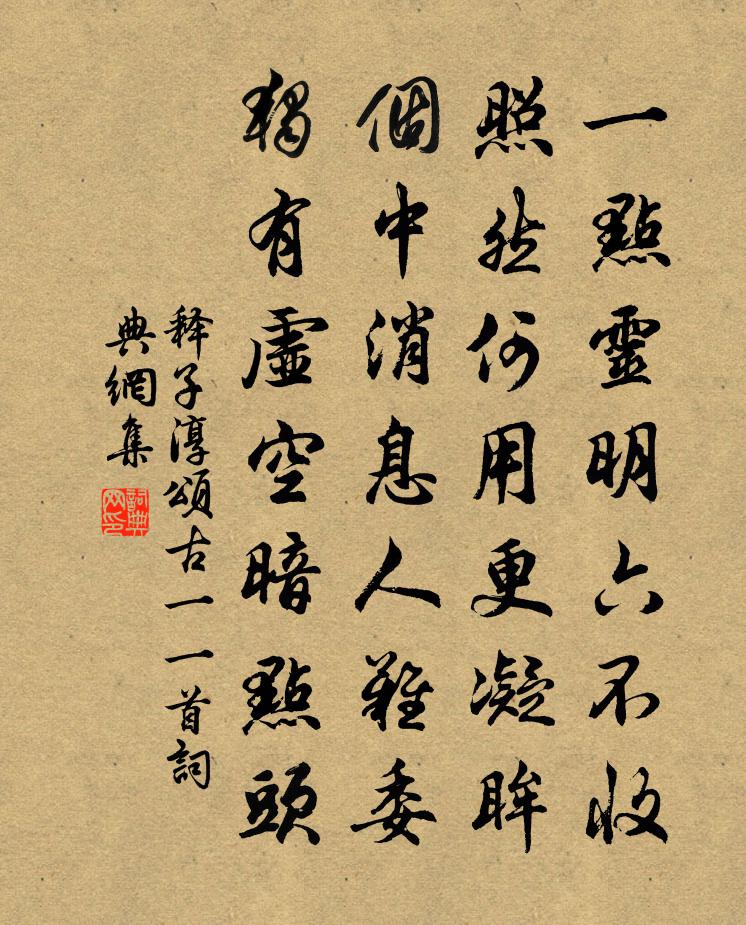 一點靈明六不收
照然何用更凝眸
個中消息人難委
獨有虛空暗點頭
释子淳頌古一一首詞
典網集
詞典
网印